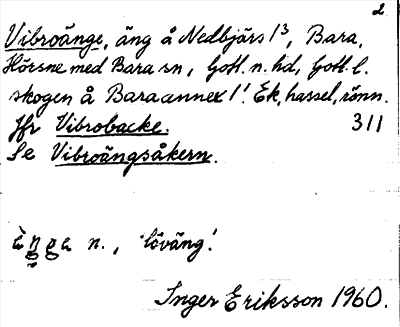 2
Vibroänge, äng å Nedbjärs 1³, Bara,
Hörsne med Bara sn, Gotl. n. hd, Gotl. l.
skogen å Bara annex 1¹. Ek, hassel, rönn.
Jfr Vibrobacke. 311
Se Vibroängsåkern.
änga n., 'löväng'.
Inger Eriksson 1960.